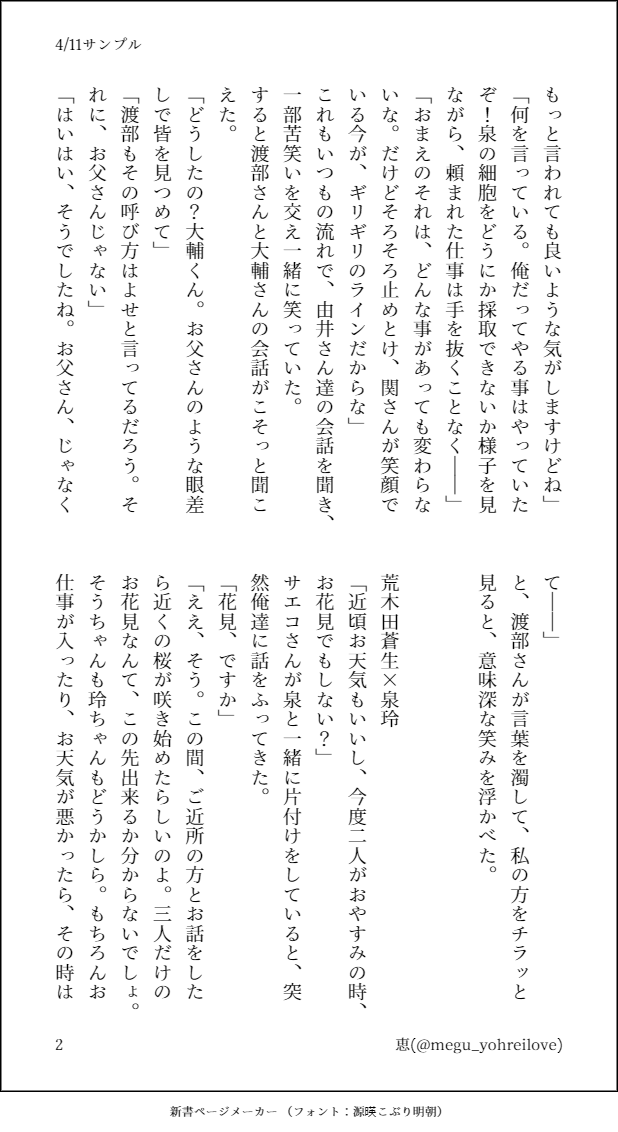 4/11サンプル
もっと言われても良いような気がしますけどね」
「何を言っている。俺だってやる事はやっていた
ぞ！泉の細胞をどうにか採取できないか様子を見
ながら、頼まれた仕事は手を抜くことなく――」
「おまえのそれは、どんな事があっても変わらな
いな。だけどそろそろ止めとけ、関さんが笑顔で
いる今が、ギリギリのラインだからな」
これもいつもの流れで、由井さん達の会話を聞き、
一部苦笑いを交え一緒に笑っていた。
すると渡部さんと大輔さんの会話がこそっと聞こ
えた。
「どうしたの？大輔くん。お父さんのような眼差
しで皆を見つめて」
「渡部もその呼び方はよせと言ってるだろう。そ
れに、お父さんじゃない」
「はいはい、そうでしたね。お父さん、じゃなく
て――」
と、渡部さんが言葉を濁して、私の方をチラッと
見ると、意味深な笑みを浮かべた。
荒木田蒼生×泉玲
「近頃お天気もいいし、今度二人がおやすみの時、
お花見でもしない？」
サエコさんが泉と一緒に片付けをしていると、突
然俺達に話をふってきた。
「花見、ですか」
「ええ、そう。この間、ご近所の方とお話をした
ら近くの桜が咲き始めたらしいのよ。三人だけの
お花見なんて、この先出来るか分からないでしょ。
そうちゃんも玲ちゃんもどうかしら。もちろんお
仕事が入ったり、お天気が悪かったら、その時は
2
恵(@megu_yohreilove)
新書ページメーカー（フォント：源暎こぶり明朝）